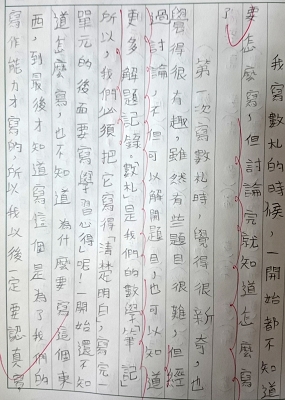 我寫數札的時候,一開始都不知道
要怎麼寫,但討論完就知道怎麼寫
了。
第一次寫數札時,覺得很新奇,也
覺得很有趣,雖然有些題目很難,但經
過討論,不但可以解開題目,也可以知道
更多解題記錄。「數札」是我們的數學筆記,
所以,我們必須把它寫得「清楚明白」,寫完一
單元的後面要寫學習心得呢!一開始還不知
道怎麼寫,也不知道為什麼要寫這個東
西,到最後才知道寫這個是為了我們的
寫作能力才寫的,所以我以後一定要認真寫。